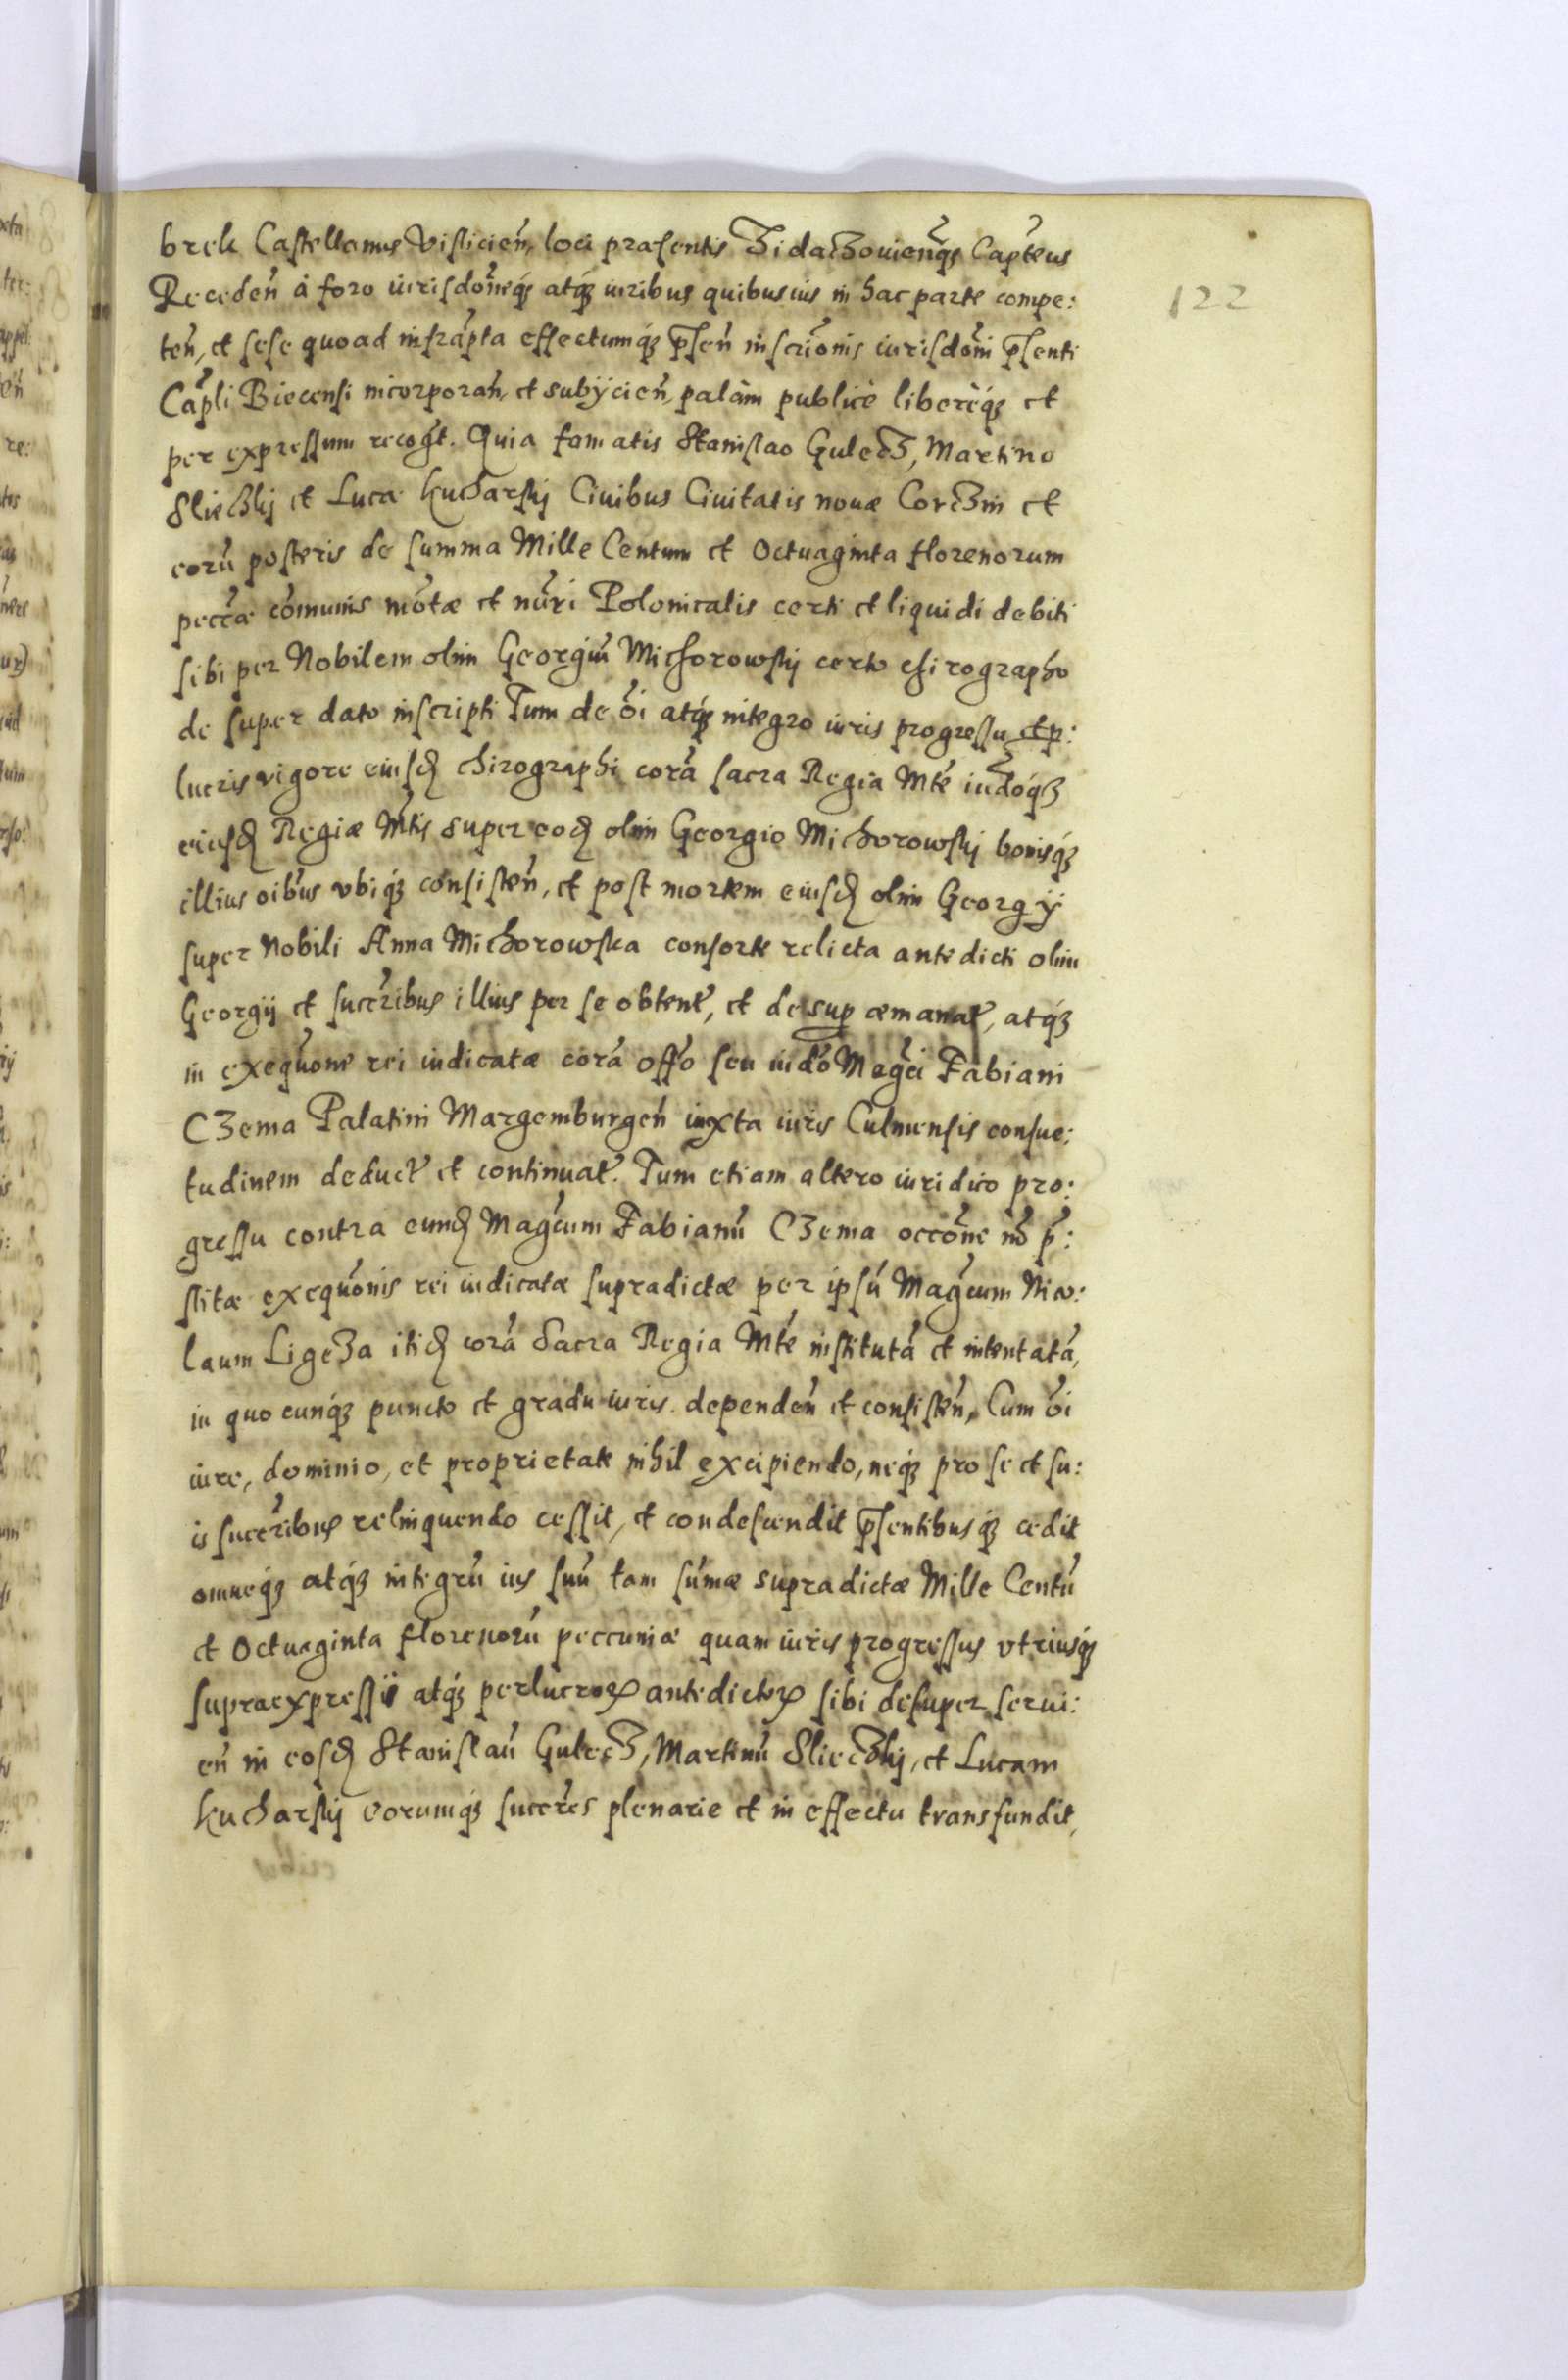 brek Castellanus Visliciẽn, loci præsentis Zidaczouieñq3 Captẽus
122
Recedeñ à foro iurisdõneq3 atq3 iuribus quibusuis in hac parte compe:
teñ, et sese quoad infrãpta effectumq3 p̃señ inscriõnis iurisdõni p̃senti
Cap̃li Biecensi incorporañ, et subÿcieñ, palàm publicè liberèq3 et
per expressum recog̃t. Quia famatis Stanislao Gulecz, Martino
Slieczkij et Luca Kucharskij Ciuibus Ciuitatis nouæ Corczin et
eorũ posteris de summa Mille Centum et Octuaginta florenorum
pecc̃æ cõmunis mõtæ et nũri Polonicalis certi et liquidi debiti
sibi per Nobilem olim Georgiũ Michorowskij certo chirographo
de super dato inscripti Tum de õi atq3 integro iuris progressu et p:
lucris vigore eiusd chirographi corã sacra Regia Mt̃e iud̃oq3
eiusd Regiæ Mt̃is super eod olim Georgio Michorowskij bonisq3
illius oĩbus vbiq3 consisteñ, et post mortem eiusd olim Georgÿ
super Nobili Anna Michorowska consorte relicta antedicti olim
Georgij et succr̃ibus illius per se obtent̃, et desup æmanat̃, atq3
in exequõne rei iudicatæ corã off̃o seu iud̃o Mag̃ci Fabiani
Czema Palatini Margemburgeñ iuxta iuris Culmensis consue:
tudinem deduct̃ et continuat̃. Tum etiam altero iuridico pro:
gressu contra eund Mag̃cum Fabianũ Czema occõne nõ p̃:
stitæ exequõnis rei iudicatæ supradictæ per ipsũ Mag̃cum Nico:
laum Ligeza itid corã Sacra Regia Mt̃e institutã et intentatã,
in quocunq3 puncto et gradu iuris dependeñ et consisteñ, Cum õi
iure, dominio, et proprietate nihil excipiendo, neq3 pro se et su:
is succr̃ibus relinquendo cessit, et condescendit p̃sentibusq3 cedit
omneq3 atq3 integrũ ius suũ tam sũmæ supradictæ Mille Centũ
et Octuaginta florenorũ peccuniæ quam iuris progressus vtriusq3
supraexpressi atq3 perlucroꝝ antedictoꝝ sibi desuper serui:
eñ in eosd Stanislaũ Gulecz, Martinũ Slieczkij, et Lucam
Kucharskij eorumq3 succr̃es plenarie et in effectu transfundit,